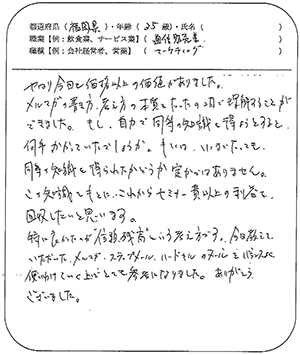 都道府県（福岡県）・年齢（35歳）・氏名（　　　）
職業【例：飲食業、サービス業】（通信販売業）
職種【例：会社経営者、営業】（マーケティング）
やはり今日も価格以上の価値がありました。
メルマガの書き方、考え方の本質をたったの1日で理解することが
できました。もし、自力で同等の知識を得ようとすると、
何年かかっていたでしょうか。もしくは、いつまでたっても、
同等の知識を得られたかどうか定かではありません。
この知識をもとに、これからセミナー費以上の利益を
回収したいと思います。
特に良かったのが"信頼残高"という考え方です。今日教えて
いただいた、メルマガ、ステップメール、ハードセルのメールをバランスよく
使い分けていく上でとても参考になりました。ありがとう
ございました。